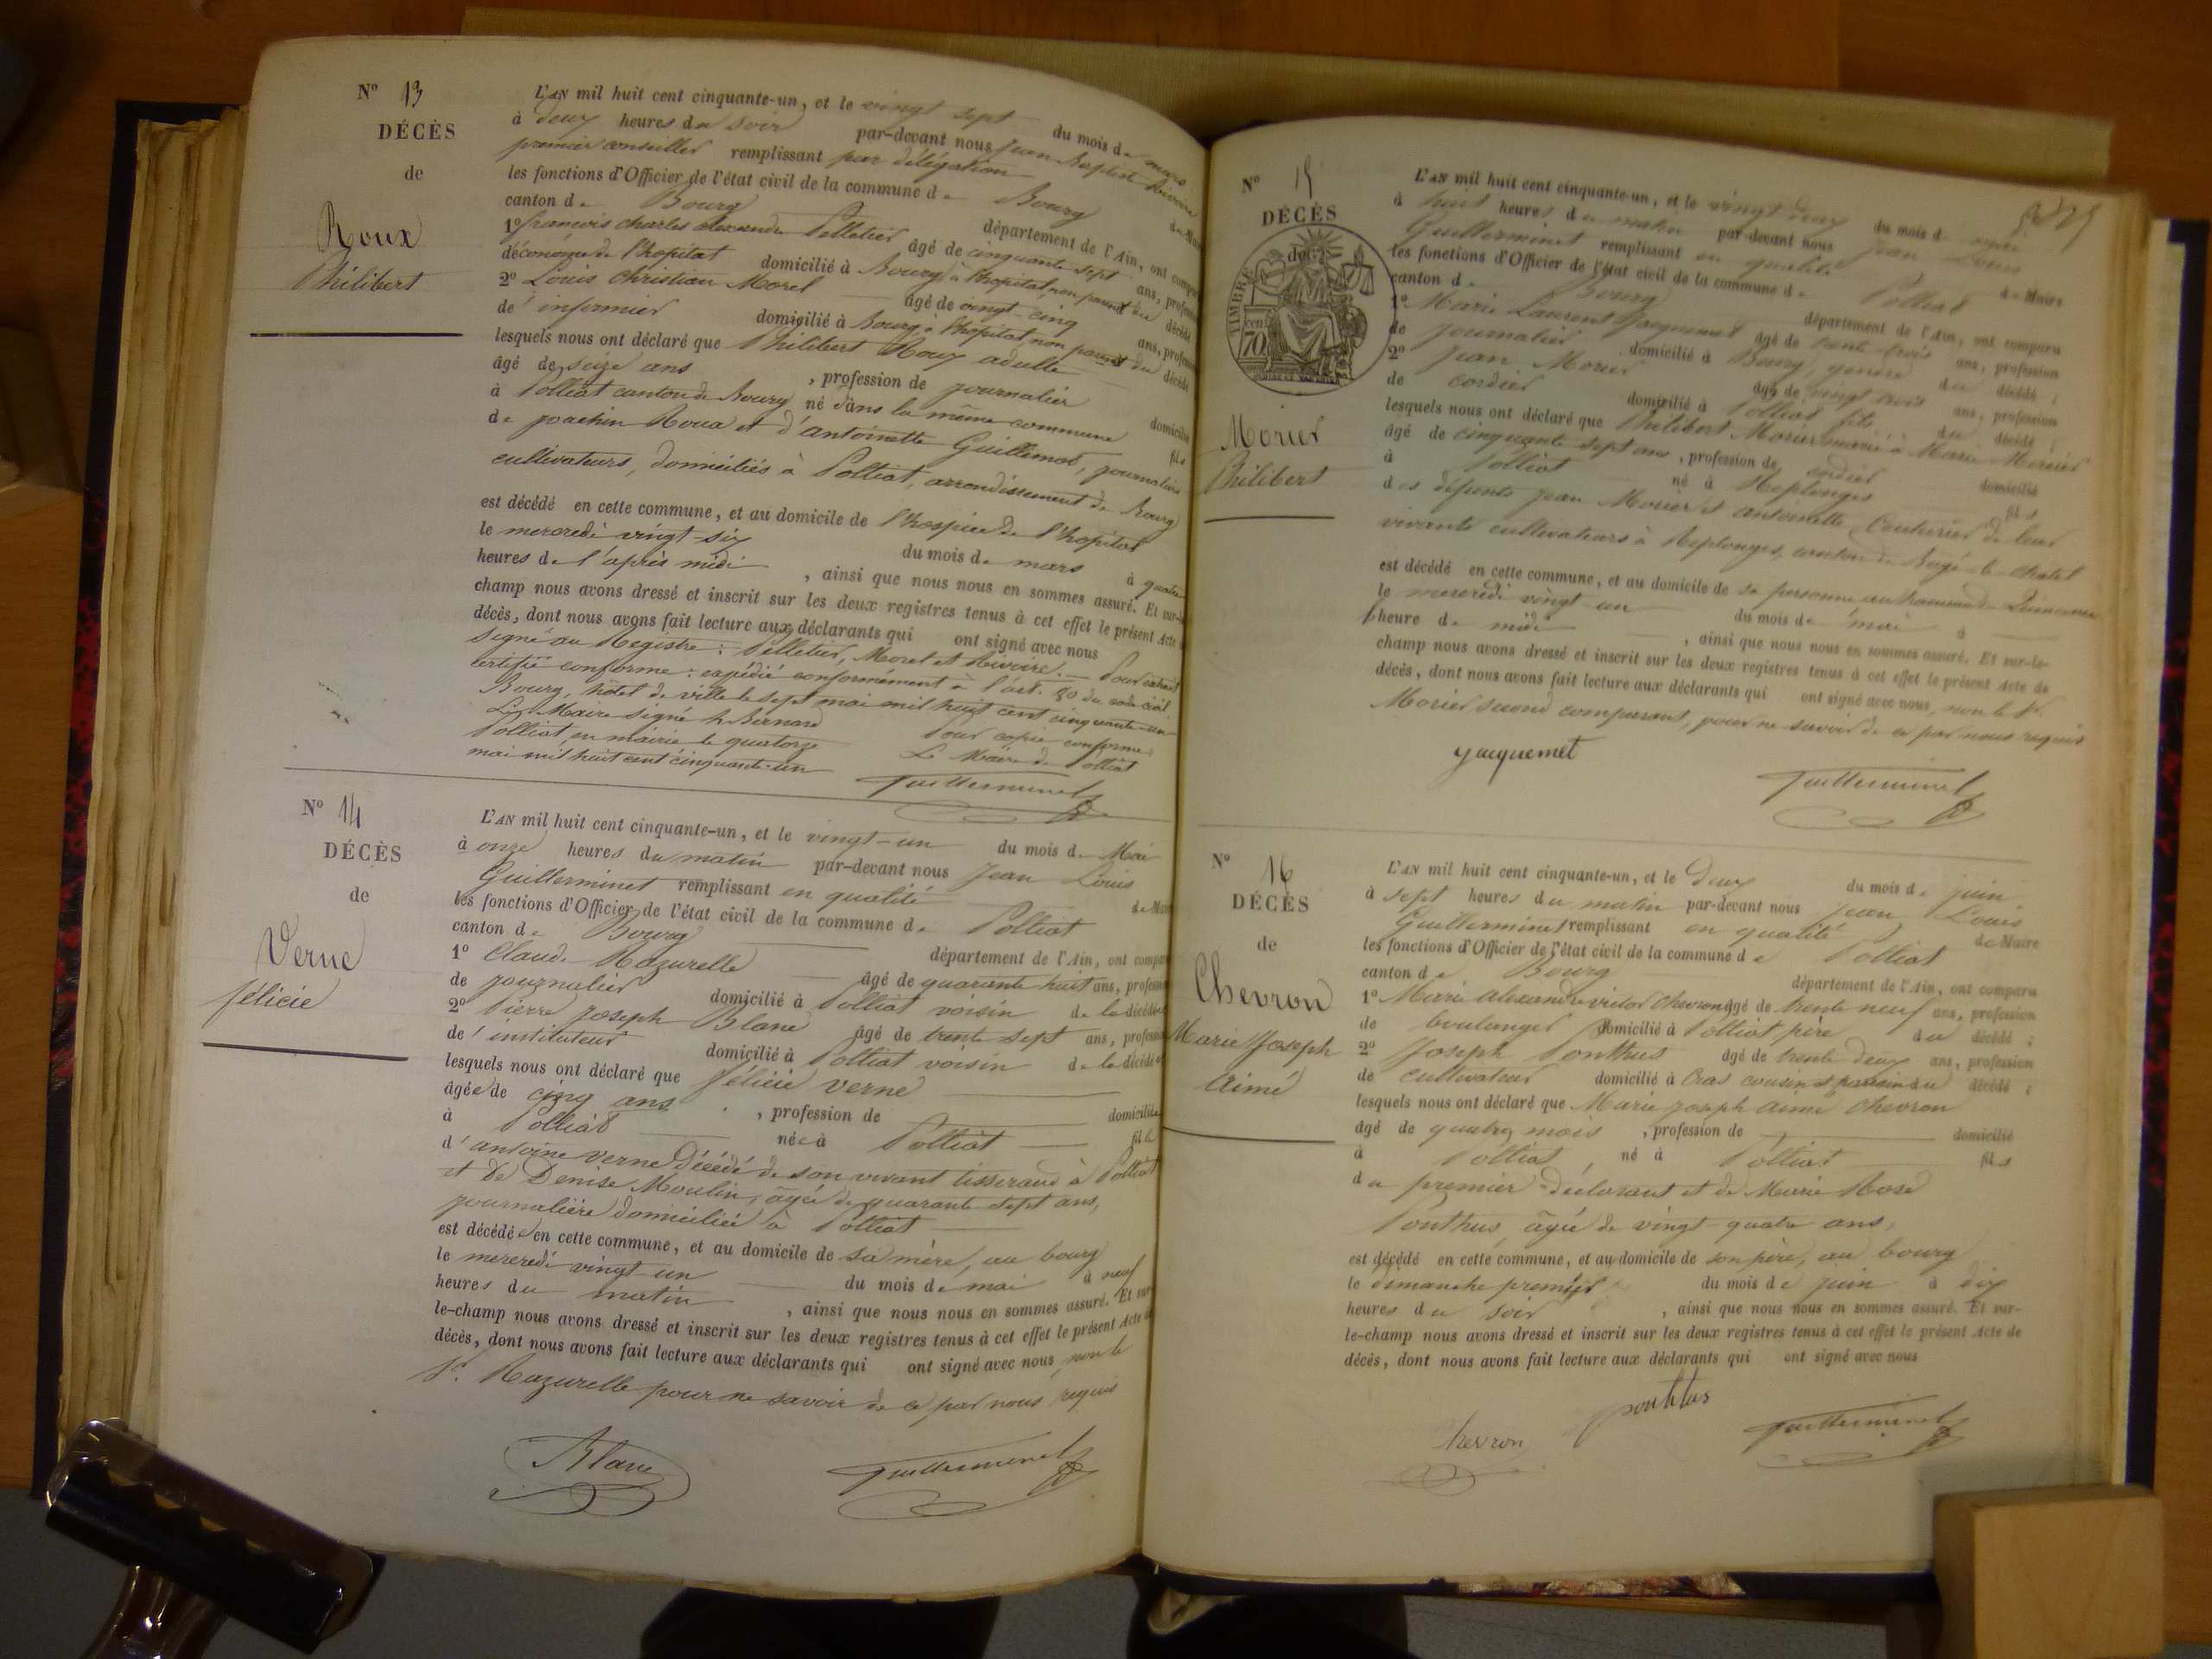 N° 13
DÉCÈS
de
Roux
Philibert
L'AN mil huit cent cinquante-un, et le vingt sept du mois de mars
à deux heures du soir par-devant nous Jean Baptiste Rivoire
premier conseiller remplissant par délégation
les fonctions d'Officier de l'état civil de la commune de Bourg
canton de Bourg département de l'Ain, ont
1° françois charles alexandre Pelletier âgé de cinquante sept ans,
d'économe de l'hopital domicilié à Bourg, à l'hopital, non parent du décédé
2° Louis Christian Morel âgé de vingt-cinq ans,
de infirmier domicilié à Bourg, à l'hopital, non parent du décédé
lesquels nous ont déclaré que Philibert Roux adulte
âgé de seize ans, profession de journalier
à Polliat canton de Bourg né dans la même commune fils
de joachim Roux et d'antoinette Guillemot, journaliers
cultivateurs, domiciliés à Polliat, arrondissement de Bourg
est décédé en cette commune, et au domicile de l'hospice de l'hopital
le mercredi vingt-six du mois de mars à quatre
heures de l'après midi, ainsi que nous nous en sommes assuré. Et sur-le-
champ nous avons dressé et inscrit sur les deux registres tenus à cet effet le présent Acte
décès, dont nous avons fait lecture aux déclarants qui ont signé avec nous
Signé au Registre: Pelletier, Morel et Rivoire. — Pour extrait
certifié conforme: expédié conformément à l'art. 80 du code civil
Bourg, hôtel de ville le sept mai mil huit cent cinquante-un
Le Maire signé h Bernard Pour copie conforme
Polliat, en mairie le quatorze Le Maire de Polliat
mai mil huit cent cinquante-un Guillerminet
N° 14
DÉCÈS
de
Verne
félicie
L'AN mil huit cent cinquante-un, et le vingt-un du mois de Mai
à onze heures du matin par-devant nous Jean Louis
Guillerminet remplissant en qualité de Maire
les fonctions d'Officier de l'état civil de la commune de Polliat
canton de Bourg département de l'Ain, ont
1° Claude Mazurelle âgé de quarante huit ans,
de journalier domicilié à Polliat voisin de la décédée
2° Pierre Joseph Blanc âgé de trente sept ans,
de instituteur domicilié à Polliat voisin de la décédée
lesquels nous ont déclaré que félicie verne
âgée de cinq ans, profession de domiciliée
à Polliat née à Polliat fille
d'antoine verne décédé de son vivant tisserand à Polliat
et de Denise Moulin, âgée de quarante sept ans,
journalière domiciliée à Polliat
est décédée en cette commune, et au domicile de sa mère, au bourg
le mercredi vingt-un du mois de mai à neuf
heures du matin, ainsi que nous nous en sommes assuré. Et sur-
le-champ nous avons dressé et inscrit sur les deux registres tenus à cet effet le présent Acte de
décès, dont nous avons fait lecture aux déclarants qui ont signé avec nous, non le
Sr. Mazurelle pour ne savoir de ce par nous requis
Blanc Guillerminet
N° 15
DÉCÈS
TIMBRE
70
Morier
Philibert
L'AN mil huit cent cinquante-un, et le vingt-deux du mois de mai
à huit heures du matin par-devant nous Jean Louis
Guillerminet remplissant en qualité de Maire
les fonctions d'Officier de l'état civil de la commune de Polliat
canton de Bourg département de l'Ain, ont comparu
1° Marie Laurent Jacquemet âgé de trente-trois ans, profession
de journalier domicilié à Bourg, gendre du décédé;
2° Jean Morier âgé de vingt trois ans, profession
de cordier domicilié à Polliat fils du décédé;
lesquels nous ont déclaré que Philibert Morier marié à Marie Mercier
âgé de cinquante sept ans, profession de cordier domicilié
à Polliat né à Replonges fils
des défunts Jean Morier et antoinette Couturier de leur
vivants cultivateurs à Replonges, canton de Bagé-le-Chatel
est décédé en cette commune, et au domicile de sa personne au hameau de
le mercredi vingt-un du mois de mai à
heure de midi, ainsi que nous nous en sommes assuré. Et sur-le-
champ nous avons dressé et inscrit sur les deux registres tenus à cet effet le présent Acte de
décès, dont nous avons fait lecture aux déclarants qui ont signé avec nous, non le Sr.
Morier second comparant, pour ne savoir de ce par nous requis
Jacquemet
Guillerminet
N° 16
DÉCÈS
de
Chevron
Marie Joseph
Aimé
L'AN mil huit cent cinquante-un, et le deux du mois de juin
à sept heures du matin par-devant nous Jean Louis
Guillerminet remplissant en qualité de Maire
les fonctions d'Officier de l'état civil de la commune de Polliat
canton de Bourg département de l'Ain, ont comparu
1° Marie alexandre victor Chevron âgé de trente neuf ans, profession
de boulanger domicilié à Polliat père du décédé;
2° Joseph Ponthus âgé de trente deux ans, profession
de cultivateur domicilié à Cras cousin et parrain du décédé;
lesquels nous ont déclaré que Marie joseph aimé Chevron
âgé de quatre mois, profession de domicilié
à Polliat né à Polliat fils
du premier déclarant et de Marie Rose
Ponthus, âgée de vingt-quatre ans,
est décédé en cette commune, et au domicile de son père, au bourg
le dimanche premier du mois de juin à dix
heures du soir, ainsi que nous nous en sommes assuré. Et sur-
le-champ nous avons dressé et inscrit sur les deux registres tenus à cet effet le présent Acte de
décès, dont nous avons fait lecture aux déclarants qui ont signé avec nous
Chevron ponthus Guillerminet